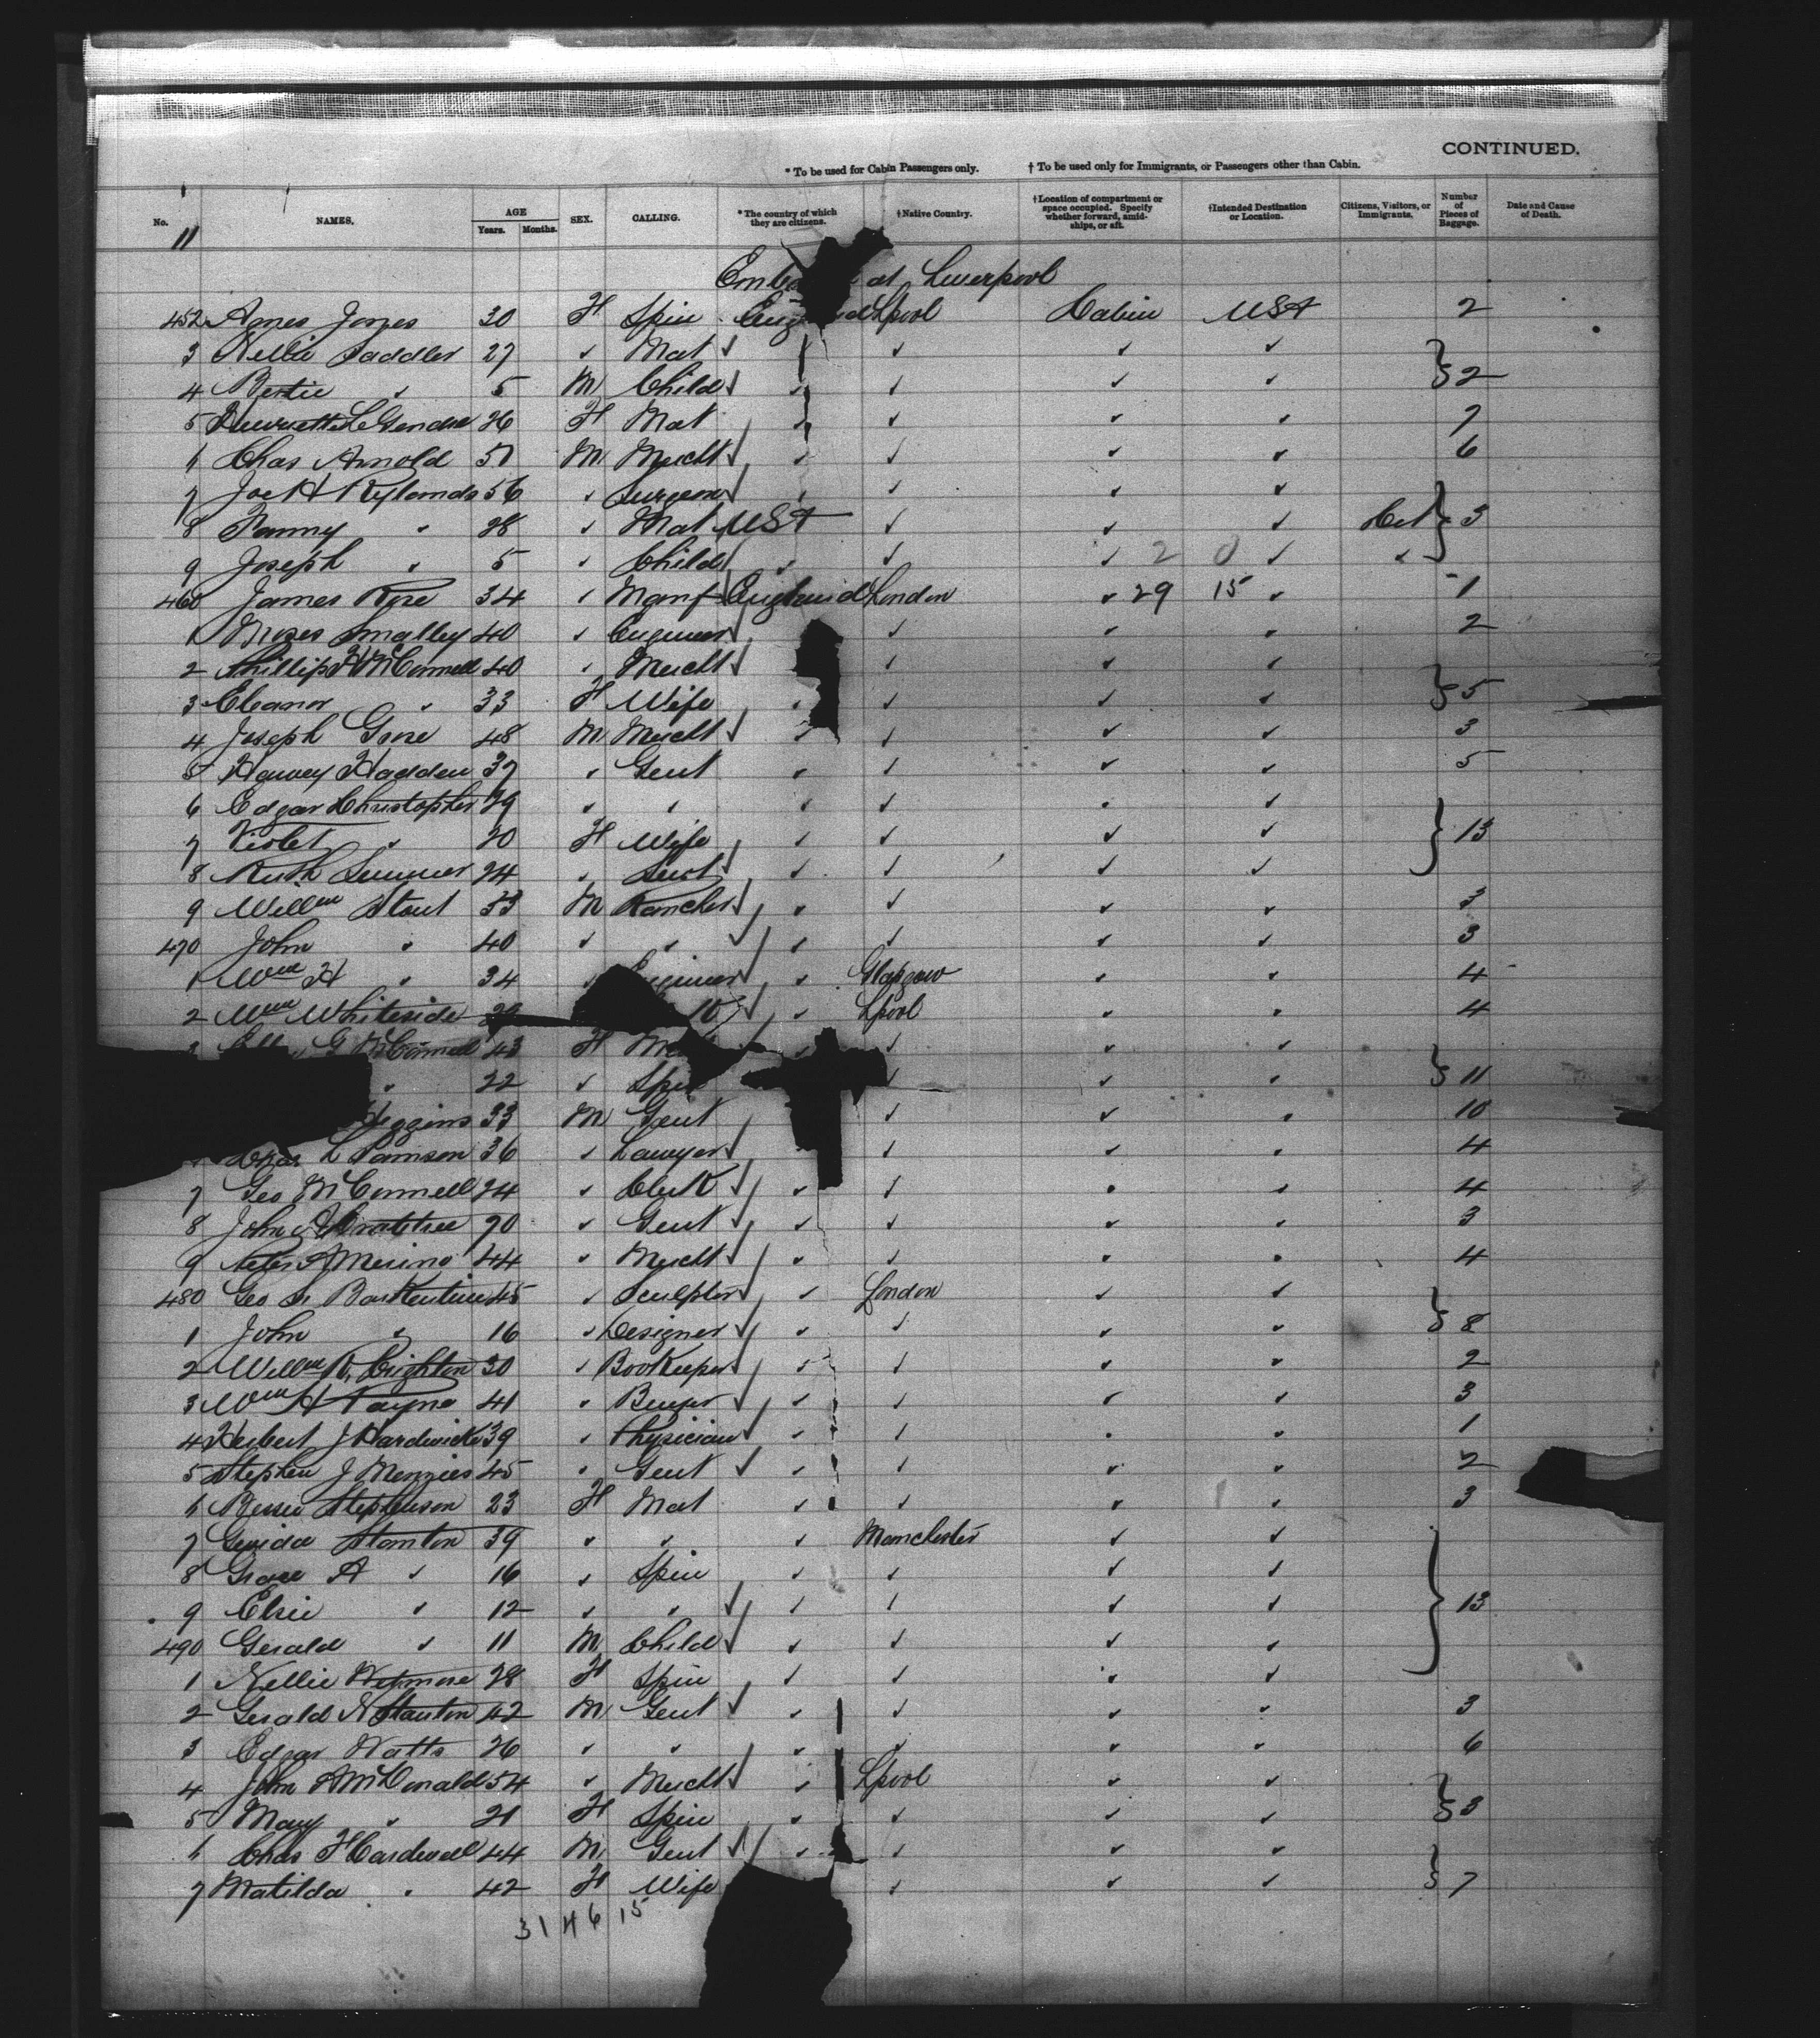 CONTINUED.
* To be used for Cabin Passengers only. † To be used only for Immigrants, or Passengers other than Cabin.
No. NAMES. AGE Years. Months. SEX. CALLING. *The country of which they are citizens. †Native Country. †Location of compartment or space occupied. Specify whether forward, amidships, or aft. †Intended Destination or Location. Citizens, Visitors, or Immigrants. Number of Pieces of Baggage. Date and Cause of Death.
11
at Liverpool
452 Agnes Jones 30 F Spin Lpool Cabin USA 2
3 Nellie Saddler 27 " Mat ✓ " " " "
4 Bertie " 5 M Child ✓ " " " " } 2
5 LeGendre 26 F Mat " " " " 7
6 Chas Arnold 51 M Mercht ✓ " " " " 6
7 Jos H Rylands 56 " Surgeon ✓ " " " "
8 Fanny " 28 " Mat USA " " " } 3
9 Joseph " 5 " Child " " " 2 0 " "
460 James Rose 34 " Manf England London " 29 15 " 1
1 Moses Smalley 40 " Engineer ✓ " " " 2
2 Phillips H McConnell 40 " Mercht ✓ " " "
3 Eleanor " 33 F Wife " " " " } 5
4 Joseph Gore 48 M Mercht ✓ " " " " 3
5 Harvey Hadden 37 " Gent " " " " 5
6 Edgar Christopher 29 " " " " " "
7 Violet " 20 F Wife " " " " } 13
8 Ruth Sumner 24 " Servt ✓ " " " "
9 Willm Stout 33 M Rancher ✓ " " " " 3
470 John " 40 " " ✓ " " " " 3
1 Wm H " 34 " ✓ " Glasgow " " 4
2 Wm Whiteside ✓ " Lpool " " 4
G McConnell 43 F " " "
" 22 " Spin " " " } 11
33 M Gent " " " 10
L Samson 36 " Lawyer ✓ " " " 4
7 Geo McConnell 24 " Clerk ✓ " " " " 4
8 John Crabtree 70 " Gent ✓ " " " " 3
9 Peter A Merino 44 " Mercht ✓ " " " 4
480 Geo 45 " Sculptor ✓ " London " "
1 John " 16 " Designer ✓ " " " " } 8
2 Willm R. Crighton 30 " Bookeeper ✓ " " " " 2
3 Wm H Payne 41 " Brewer ✓ " " " " 3
4 Herbert J Hardwicke 39 " Physician ✓ " " " " 1
5 Stephen J Menzies 45 " Gent ✓ " " " " 2
6 Bessie Stephenson 23 F Mat " " " " 3
7 Stanton 39 " " " Manchester " "
8 Grace A " 16 " Spin " " " "
9 Elsie " 12 " " ✓ " " " " } 13
490 Gerald " 11 M Child ✓ " " " "
1 Nellie Wetmore 28 F Spin " " " "
2 Gerald N Stanton 42 M Gent ✓ " " " " 3
3 Edgar Watts 26 " " " " " " 6
4 John A McDonald 54 " Mercht ✓ " Lpool " "
5 Mary " 21 F Spin " " " " } 3
6 Chas F Cardwell 44 M Gent ✓ " " " "
7 Matilda " 42 F Wife " " " } 7
31 46 15